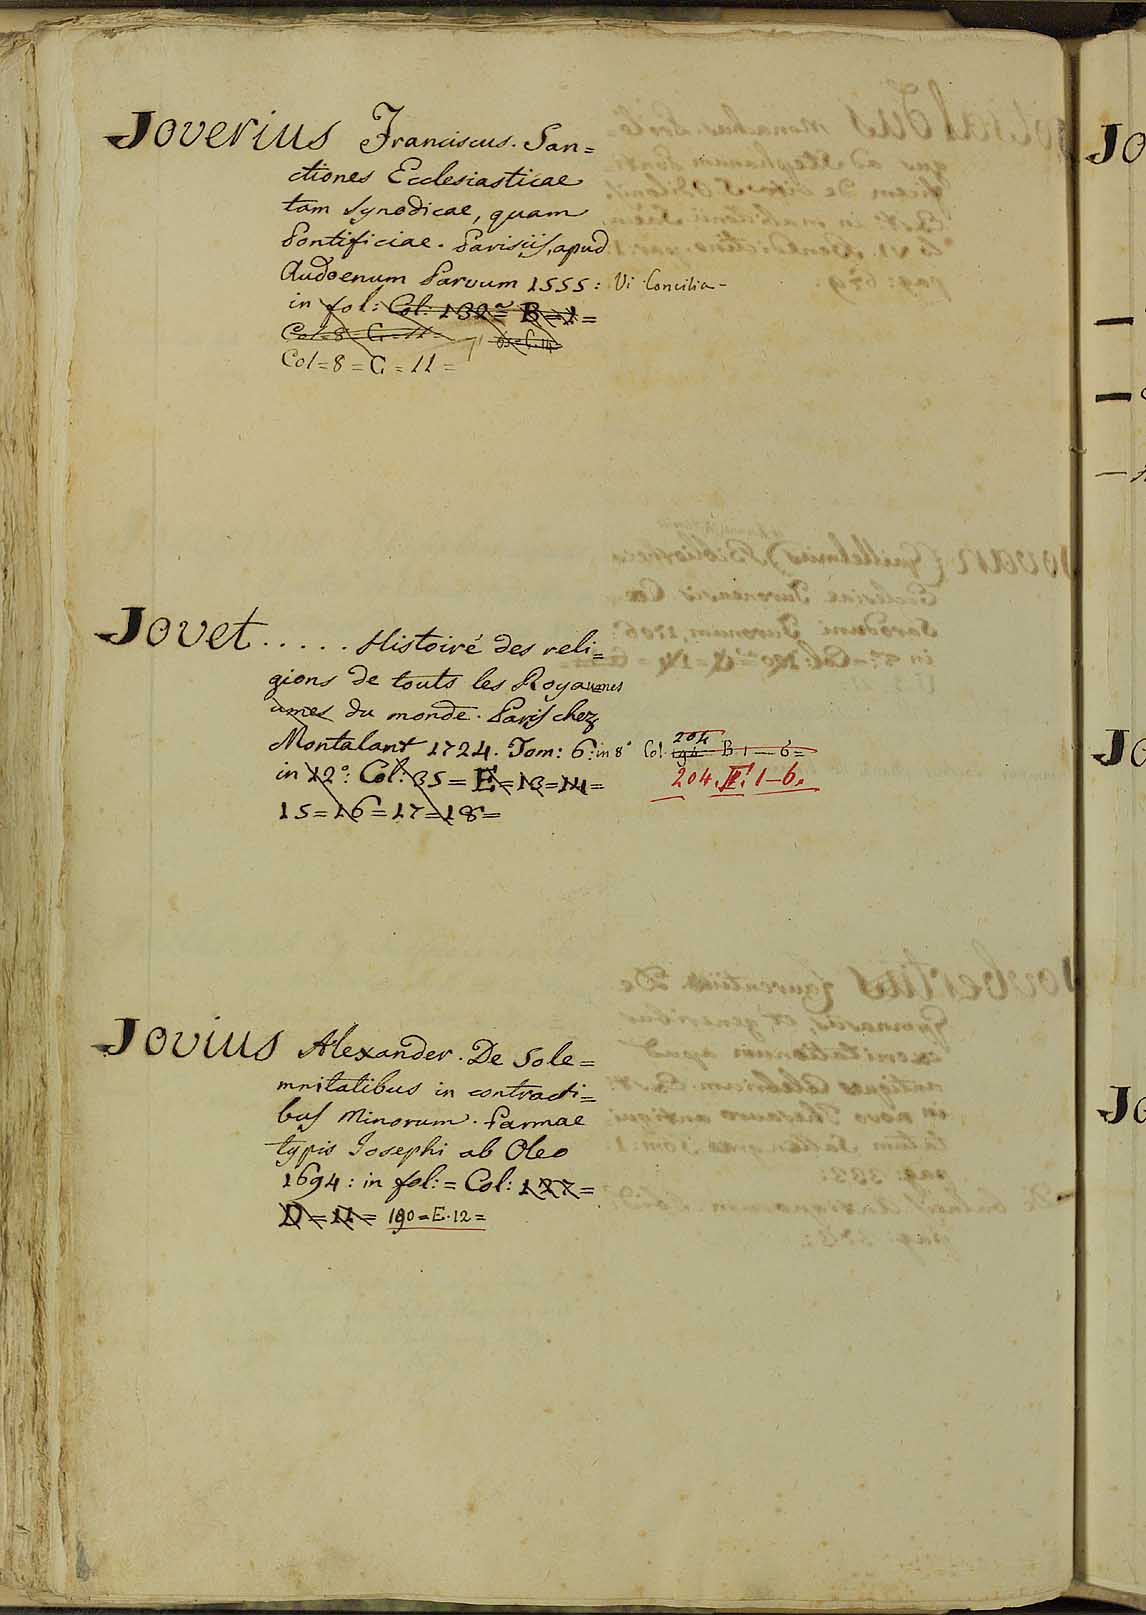 Joverius Franciscus. San=
ctiones Ecclesiasticae
tam synodicae, quam
Pontificiae. Parisiis, apud
Audoenum Parvum 1555: Vi Concilia-
in fol: Col: 132= B=1=
Col=8=G=11=
Col=8=G=11=
Jovet ..... Histoiré des reli=
gions de touts les Royaumes
aumes du monde. Paris chez
Montalant 1724. Tom: 6: in 8° Col. 204 B 1-6=
in 12°: Col: 35=E=13=14= 204. F. 1-6.
15=16=17=18=
Jovius Alexander. De Sole=
mnitatibus in contracti=
bus Minorum. Parmae
typis Iosephi ab Oleo
1694: in fol:= Col: 177=
D=11= 190=E.12=
Jo
Jo
Jo